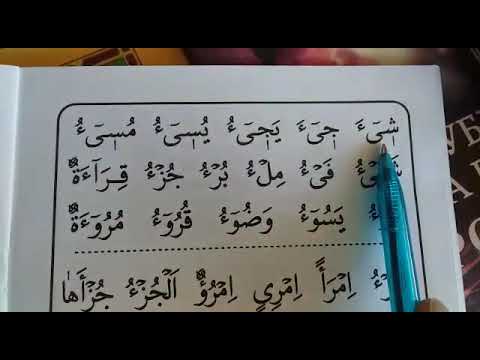 شٖىَٔ جٖىَٔ يَجٖىُٔ يُسٖىُٔ مُسٖىُٔ
فَىْءُ مِلْءُ بُرْءُ جُزْءُ قِرَآءَةٌ
يَسُوءُ وَضُوءُ قُرُوءُ مُرُوءَةٌ
اِمْرَأً اِمْرِئٍ اِمْرُؤٌ اَلْجُزْءُ جُزْأَهَا